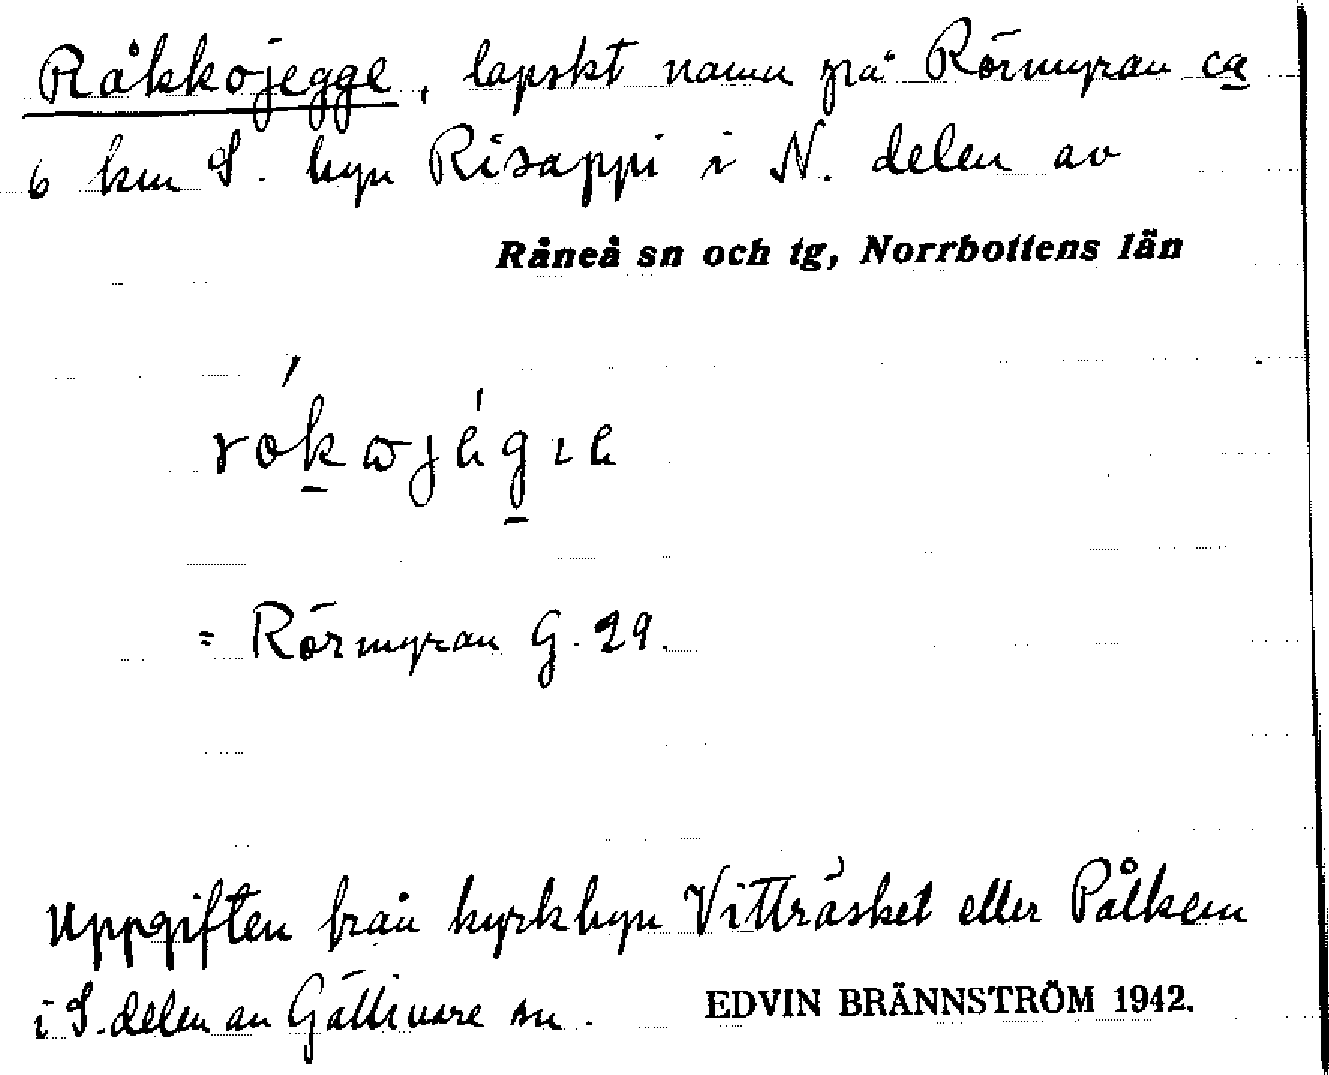 Råkkojegge, lapskt namn på Rörmyran ca
6 km S. byn Risappi i N. delen av
Råneå sn och tg, Norrbottens län
= Rörmyran G. 29.
Uppgiften från kyrkbyn Vitträsket eller Pålkem
i S. delen av Gällivare sn.
EDVIN BRÄNNSTRÖM 1942.